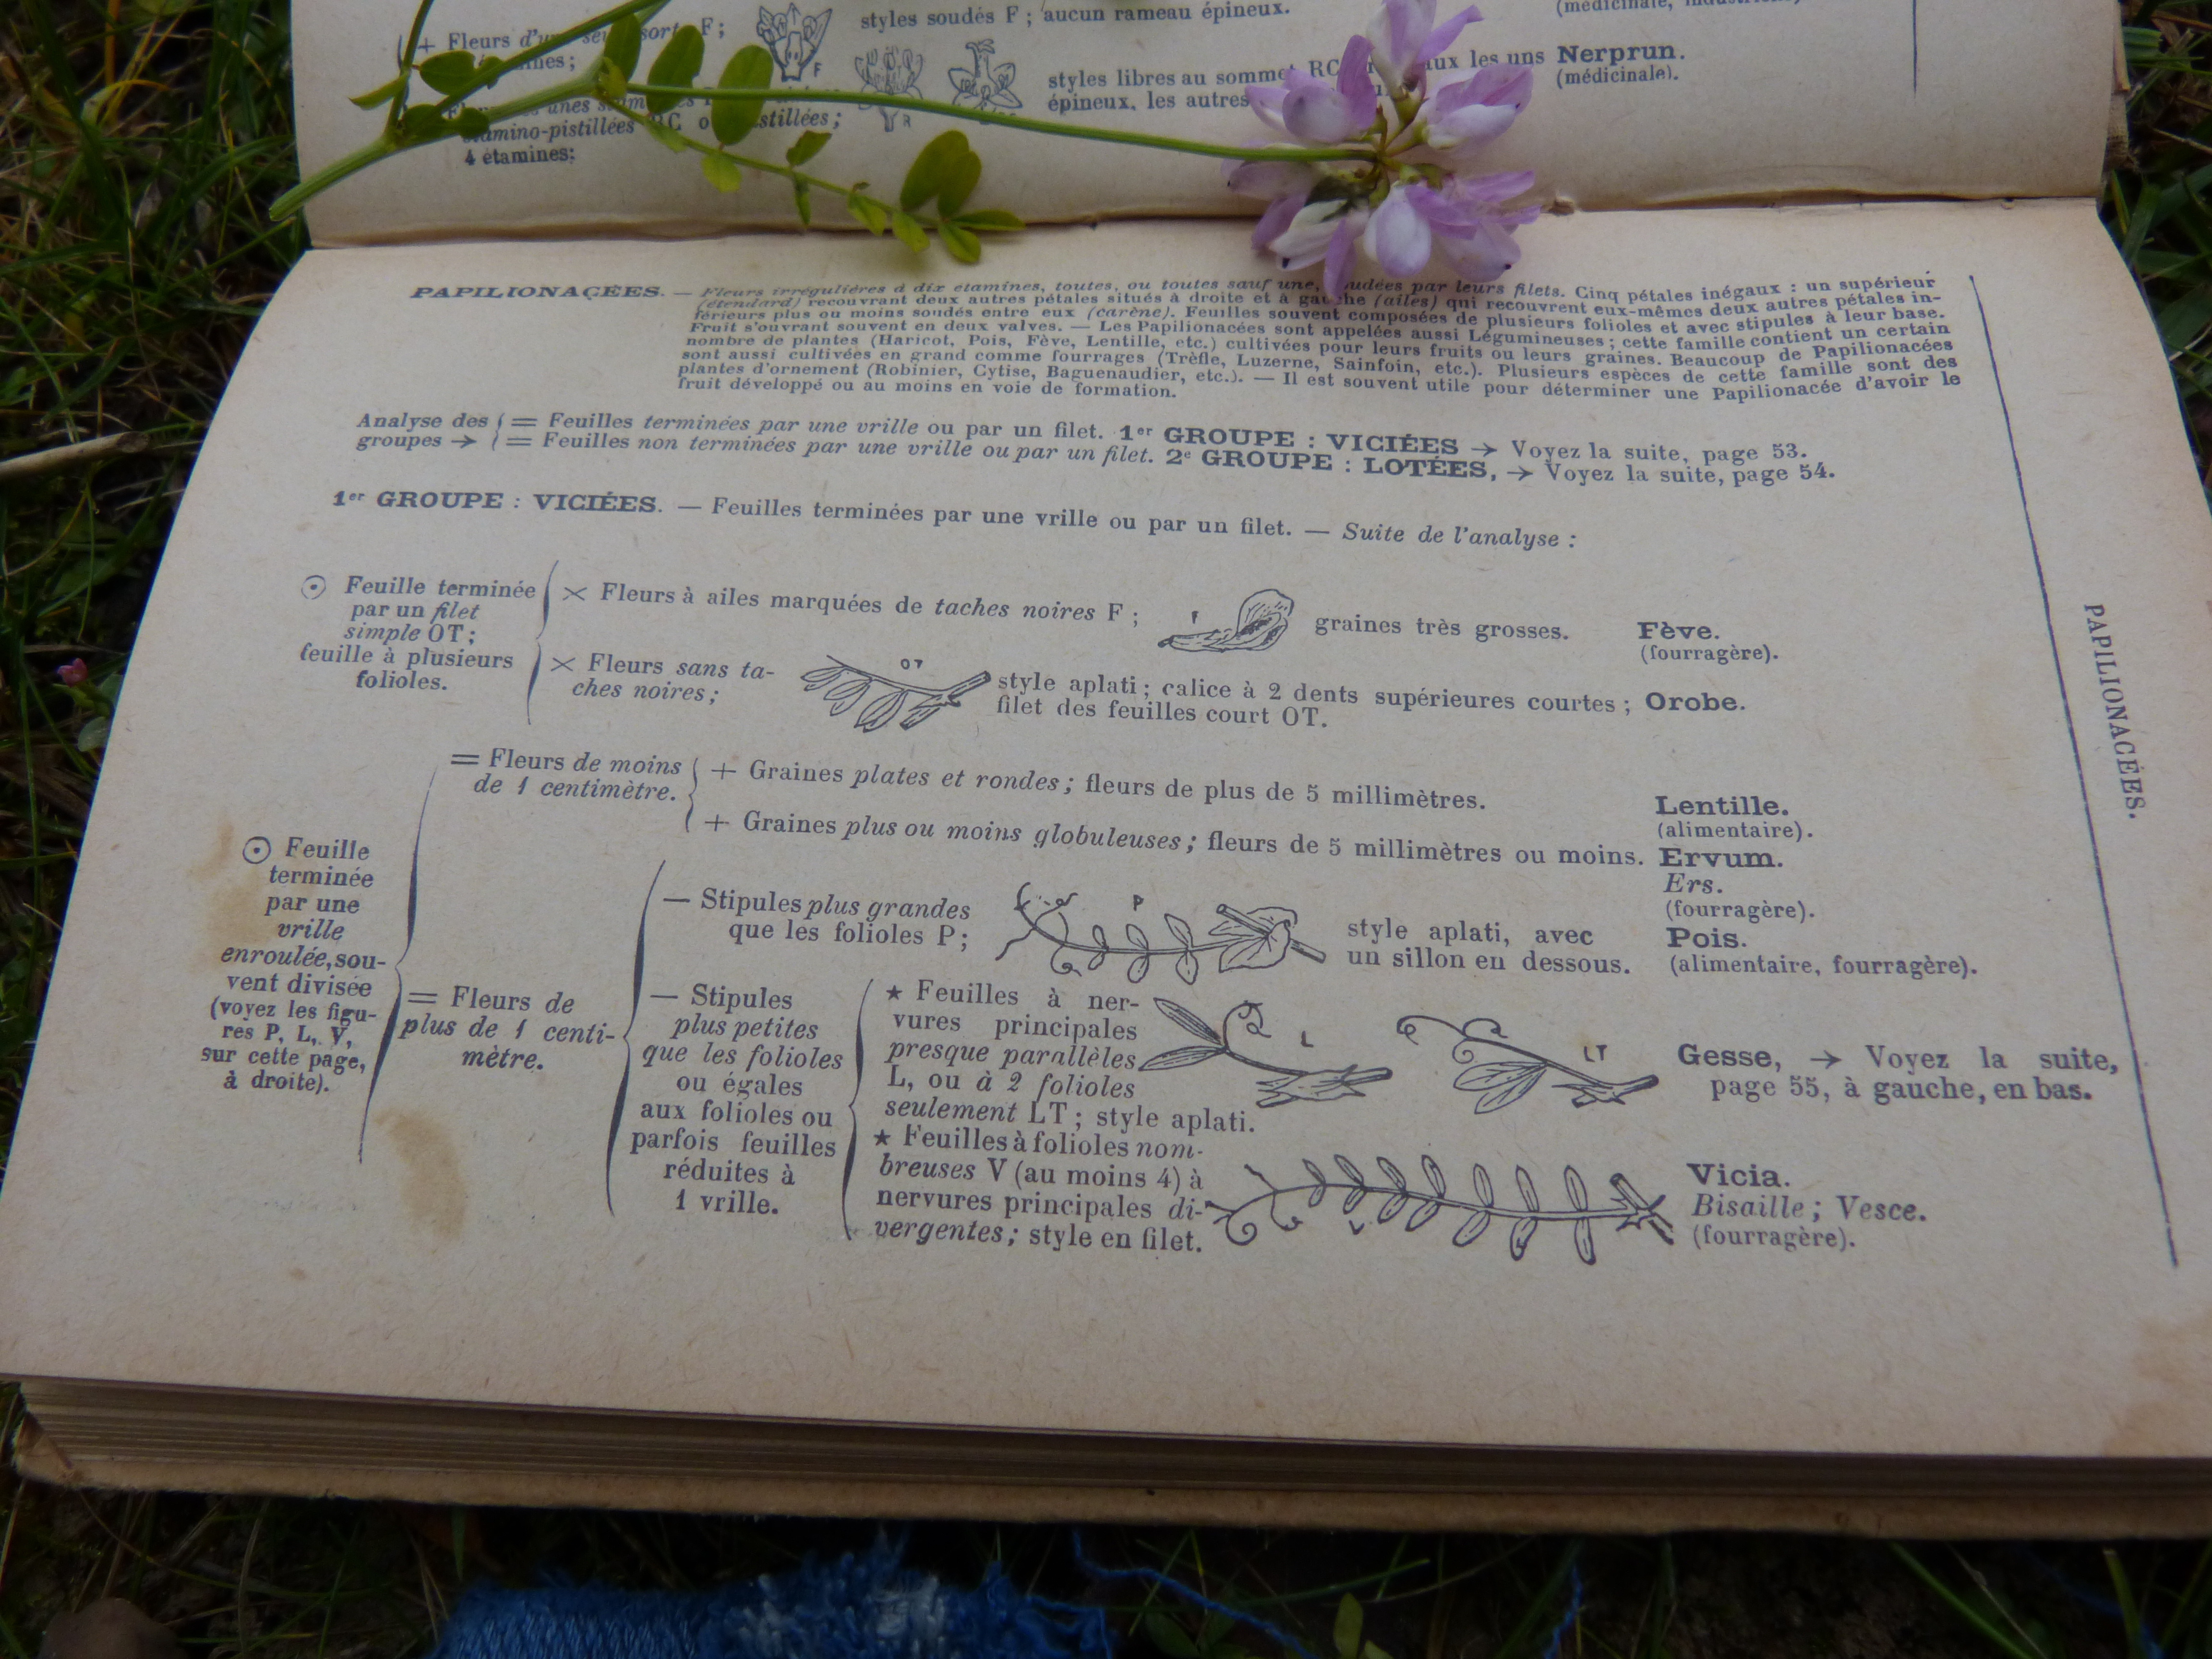 styles soudés F ; aucun rameau épineux.
+ Fleurs d'une seule sorte F ;
styles libres au sommet RC
épineux, les autres
aux les uns Nerprun.
(médicinale).
4 étamines:
PAPILIONACÉES. — Fleurs irrégulières à dix étamines, toutes, ou toutes sauf une, soudées par leurs filets. Cinq pétales inégaux : un supérieur
(étendard) recouvrant deux autres pétales situés à droite et à gauche (ailes) qui recouvrent eux-mêmes deux autres pétales in-
férieurs plus ou moins soudés entre eux (carène). Feuilles souvent composées de plusieurs folioles et avec stipules à leur base.
Fruit s'ouvrant souvent en deux valves. — Les Papilionacées sont appelées aussi Légumineuses ; cette famille contient un certain
nombre de plantes (Haricot, Pois, Fève, Lentille, etc.) cultivées pour leurs fruits ou leurs graines. Beaucoup de Papilionacées
sont aussi cultivées en grand comme fourrages (Trèfle, Luzerne, Sainfoin, etc.). Plusieurs espèces de cette famille sont des
plantes d'ornement (Robinier, Cytise, Baguenaudier, etc.). — Il est souvent utile pour déterminer une Papilionacée d'avoir le
fruit développé ou au moins en voie de formation.
Analyse des { = Feuilles terminées par une vrille ou par un filet. 1er GROUPE : VICIÉES → Voyez la suite, page 53.
groupes → { = Feuilles non terminées par une vrille ou par un filet. 2e GROUPE : LOTÉES, → Voyez la suite, page 54.
1er GROUPE : VICIÉES. — Feuilles terminées par une vrille ou par un filet. — Suite de l'analyse :
⊙ Feuille terminée
par un filet
simple OT ;
feuille à plusieurs
folioles.
× Fleurs à ailes marquées de taches noires F ;
F
graines très grosses.
Fève.
(fourragère).
× Fleurs sans ta-
ches noires ;
OT
style aplati ; calice à 2 dents supérieures courtes ; Orobe.
filet des feuilles court OT.
⊙ Feuille
terminée
par une
vrille
enroulée, sou-
vent divisée
(voyez les figu-
res P, L, V,
sur cette page,
à droite).
= Fleurs de moins
de 1 centimètre.
+ Graines plates et rondes ; fleurs de plus de 5 millimètres.
Lentille.
(alimentaire).
+ Graines plus ou moins globuleuses ; fleurs de 5 millimètres ou moins. Ervum.
Ers.
(fourragère).
= Fleurs de
plus de 1 centi-
mètre.
— Stipules plus grandes
que les folioles P ;
P
style aplati, avec
un sillon en dessous.
Pois.
(alimentaire, fourragère).
— Stipules
plus petites
que les folioles
ou égales
aux folioles ou
parfois feuilles
réduites à
1 vrille.
★ Feuilles à ner-
vures principales
presque parallèles
L, ou à 2 folioles
seulement LT ; style aplati.
L
LT
Gesse, → Voyez la suite,
page 55, à gauche, en bas.
★ Feuilles à folioles nom-
breuses V (au moins 4) à
nervures principales di-
vergentes ; style en filet.
V
Vicia.
Bisaille ; Vesce.
(fourragère).
PAPILIONACÉES.